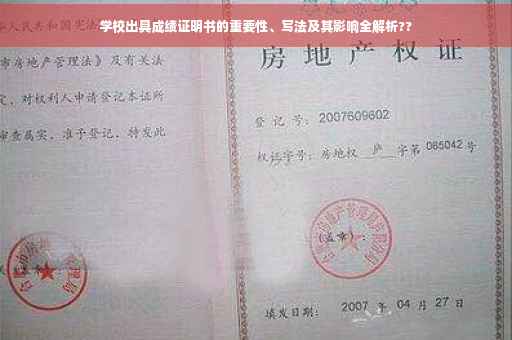 学校出具成绩证明书的重要性、写法及其影响全解析??
人民共和国宪法
市房地产管理法》及有关法
定，对权利人申请登记本证所
审查属实，准予登记，特发此
房地产权证
登记号：2007609602
权证字号：房地权 庐 字第 065042 号
(盖章)：
填发日期： 2007 年 04 月 27 日